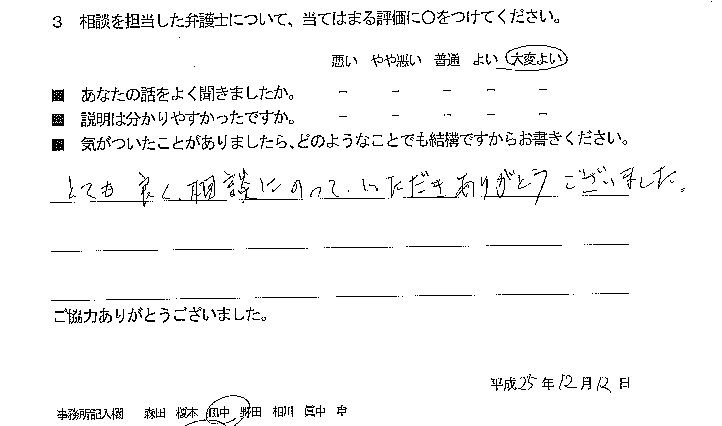 3 相談を担当した弁護士について、当てはまる評価に○をつけてください。
悪い やや悪い 普通 よい 大変よい
■ あなたの話をよく聞きましたか。 － － － － －
■ 説明は分かりやすかったですか。 － － － － －
■ 気がついたことがありましたら、どのようなことでも結構ですからお書きください。
とても良く、相談にのって、いただきありがとうございました。
ご協力ありがとうございました。
平成25年12月12日
事務所記入欄 森田 桜木 田中 野田 相川 眞中